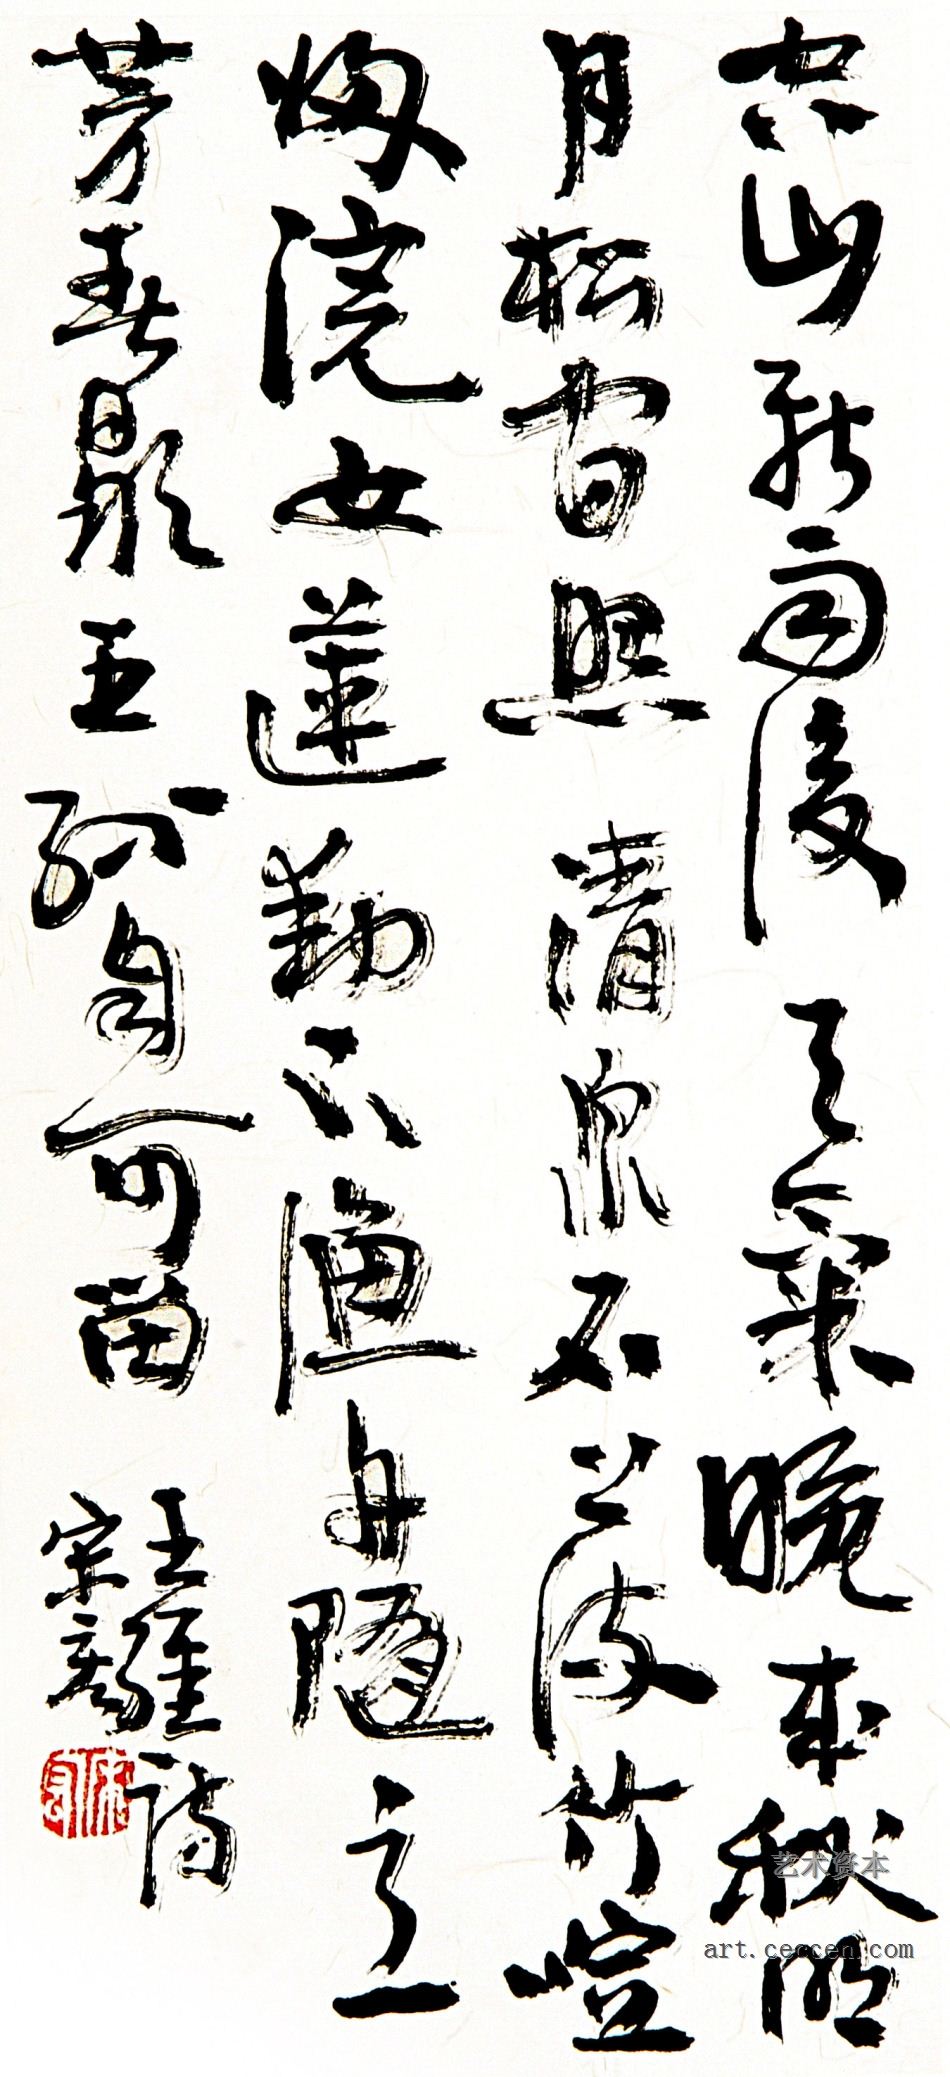 空山新雨後天氣晚來秋明
月松間照清泉石上流竹喧
歸浣女蓮動下漁舟隨意
芳春歇王孫自可留
王維詩
宋
艺术资本
art.ceccen.com